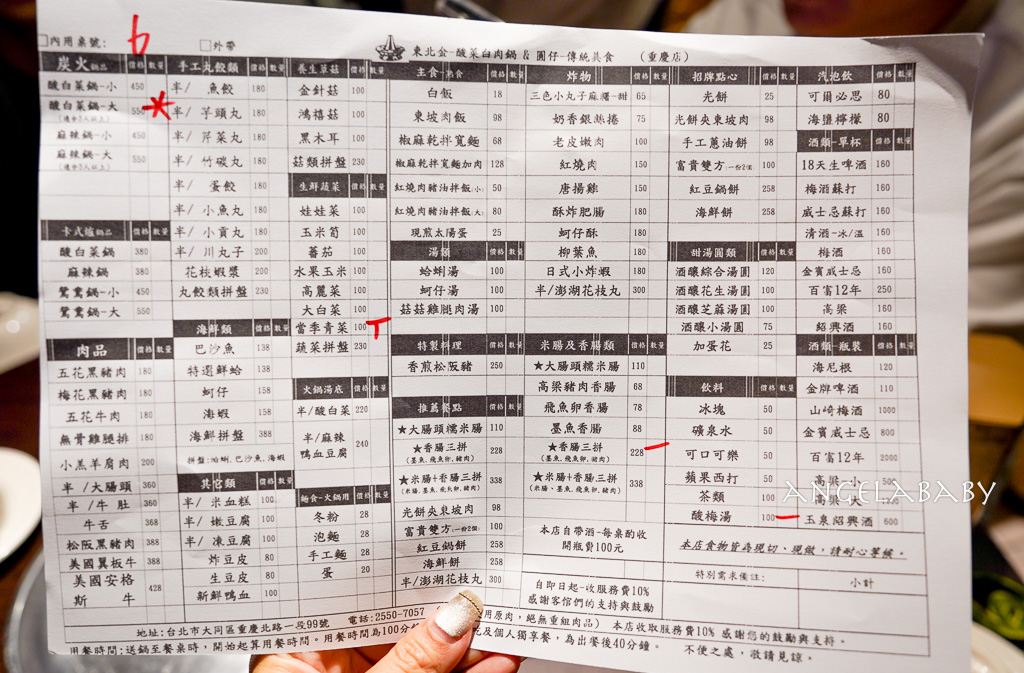 □內用桌號: 6 □外帶
東北金-酸菜白肉鍋 & 圓仔-傳統美食 (重慶店)
炭火鍋品 價格 數量
酸白菜鍋-小 450
酸白菜鍋-大 550
(適合3人以上)
麻辣鍋-小 450
麻辣鍋-大 550
(適合3人以上)
卡式爐鍋品 價格 數量
酸白菜鍋 380
麻辣鍋 380
鴛鴦鍋-小 450
鴛鴦鍋-大 550
肉品 價格 數量
五花黑豬肉 180
梅花黑豬肉 180
五花牛肉 180
無骨雞腿排 180
小羔羊肩肉 200
半 /大腸頭 360
半 /牛肚 360
牛舌 368
松阪黑豬肉 388
美國翼板牛 388
美國安格斯 牛 428
手工丸餃類 價格 數量
半/ 魚餃 180
半/ 芋頭丸 180
半/ 芹菜丸 180
半/ 竹碳丸 180
半/ 蛋餃 180
半/ 小魚丸 180
半/ 小貢丸 180
半/ 川丸子 200
花枝蝦漿 200
丸餃類拼盤 230
海鮮類 價格 數量
巴沙魚 138
特選鮮蛤 138
蚵仔 158
海蝦 158
海鮮拼盤 388
拼盤:蛤蜊, 巴沙魚, 海蝦
其它類 價格 數量
半/ 米血糕 100
半/ 嫩豆腐 100
半/ 凍豆腐 100
炸豆皮 80
生豆皮 80
新鮮鴨血 100
養生草菇 價格 數量
金針菇 100
鴻禧菇 100
黑木耳 100
菇類拼盤 230
生鮮蔬菜 價格 數量
娃娃菜 100
玉米筍 100
蕃茄 100
水果玉米 100
高麗菜 100
大白菜 100
當季青菜 100
蔬菜拼盤 230
火鍋湯底 價格 數量
半/酸白菜 220
半/麻辣鴨血豆腐 240
麵食-火鍋用 價格 數量
冬粉 28
泡麵 28
手工麵 28
蛋 20
主食-熟食 價格 數量
白飯 18
東坡肉飯 98
椒麻乾拌寬麵 68
椒麻乾拌寬麵加肉 128
紅燒肉豬油拌飯(小) 50
紅燒肉豬油拌飯(大) 80
現煎太陽蛋 25
湯類 價格 數量
蛤蜊湯 100
蚵仔湯 100
菇菇雞腿肉湯 100
特製料理 價格 數量
香煎松阪豬 250
推薦餐點 價格 數量
★大腸頭糯米腸 110
★香腸三拼 228
(墨魚,飛魚卵,豬肉)
★米腸+香腸三拼 338
(米腸、墨魚,飛魚卵,豬肉)
光餅夾東坡肉 98
富貴雙方(一份2個) 100
紅豆鍋餅 258
海鮮餅 258
半/澎湖花枝丸 300
炸物 價格 數量
三色小丸子麻糬-甜 65
奶香銀絲捲 75
老皮嫩肉 100
紅燒肉 150
唐揚雞 150
酥炸肥腸 180
蚵仔酥 180
柳葉魚 180
日式小炸蝦 180
半/澎湖花枝丸 300
米腸及香腸類 價格 數量
★大腸頭糯米腸 110
高梁豬肉香腸 68
飛魚卵香腸 78
墨魚香腸 88
★香腸三拼 228
(墨魚,飛魚卵,豬肉)
★米腸+香腸三拼 338
(米腸、墨魚,飛魚卵,豬肉)
本店自帶酒-每桌酌收
開瓶費100元
自即日起-收服務費10%
感謝客倌們的支持與鼓勵
招牌點心 價格 數量
光餅 25
光餅夾東坡肉 98
手工蔥油餅 98
富貴雙方(一份2個) 100
紅豆鍋餅 258
海鮮餅 258
甜湯圓類 價格 數量
酒釀綜合湯圓 120
酒釀花生湯圓 100
酒釀芝麻湯圓 100
酒釀小湯圓 75
加蛋花 25
飲料 價格 數量
冰塊 50
礦泉水 50
可口可樂 50
蘋果西打 50
茶類 100
酸梅湯 100
汽泡飲 價格 數量
可爾必思 80
海鹽檸檬 80
酒類-單杯 價格 數量
18天生啤酒 160
梅酒蘇打 160
威士忌蘇打 160
清酒-冰/溫 160
梅酒 160
金賓威士忌 160
百富12年 250
高梁 160
紹興酒 160
酒類-瓶裝 價格 數量
海尼根 120
金牌啤酒 110
山崎梅酒 1000
金賓威士忌 800
百富12年 2000
高梁 小 500
玉泉紹興酒 600
ANGELABABY
本店食物皆為現切、現做,請耐心等候。
特別需求備註: 小計
地址:台北市大同區重慶北路一段99號 電話:2550-7057
用原肉,絕無重組肉品) 本店收取服務費10% 感謝您的鼓勵與支持。
用餐時間:送鍋至餐桌時,開始起算用餐時間。用餐時間為100分鐘
及個人獨享餐,為出餐後40分鐘。 不便之處,敬請見諒。